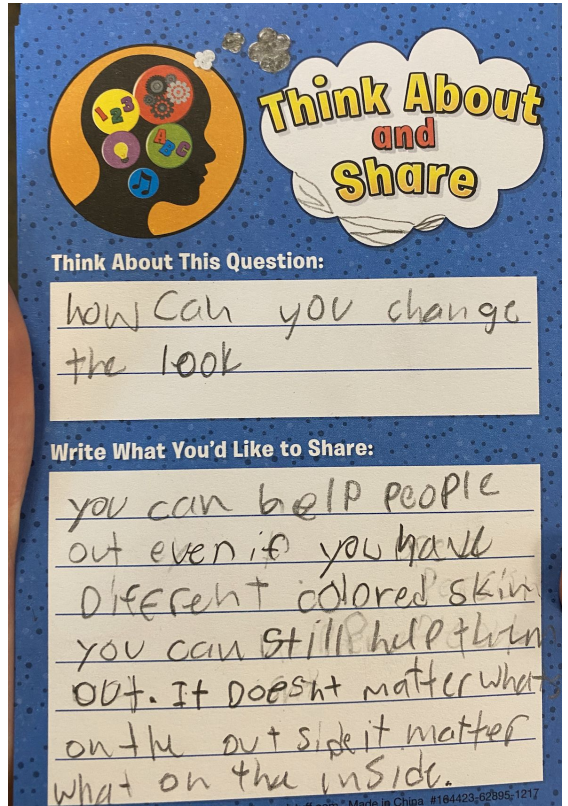 1 2 3
A B C
Think About
and
Share
Think About This Question:
how can you change
the look
Write What You'd Like to Share:
you can help people
out even if you have
Different colored skin
you can still help them
out. It Doesnt matter whats
on the out side it matter
what on the inside.
Made in China #164423-62895-1217